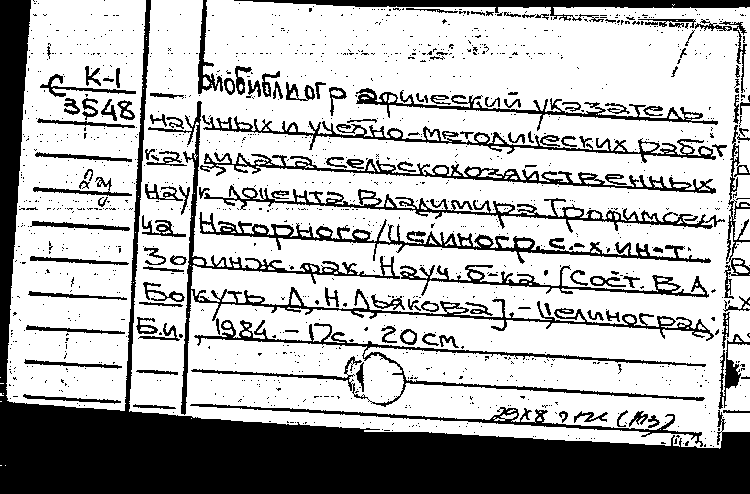 С К-1
3548
Биобиблиографический указатель
научных и учебно-методических работ
кандидата сельскохозяйственных
наук доцента Владимира Трофимови-
ча Нагорного/Целиногр. с.-х. ин-т:
Зооинж. фак. Науч. б-ка; [Сост. В.А.
Бокуть, Д.Н. Дьякова]. - Целиноград:
Б.и., 1984. - 17с.; 20см.